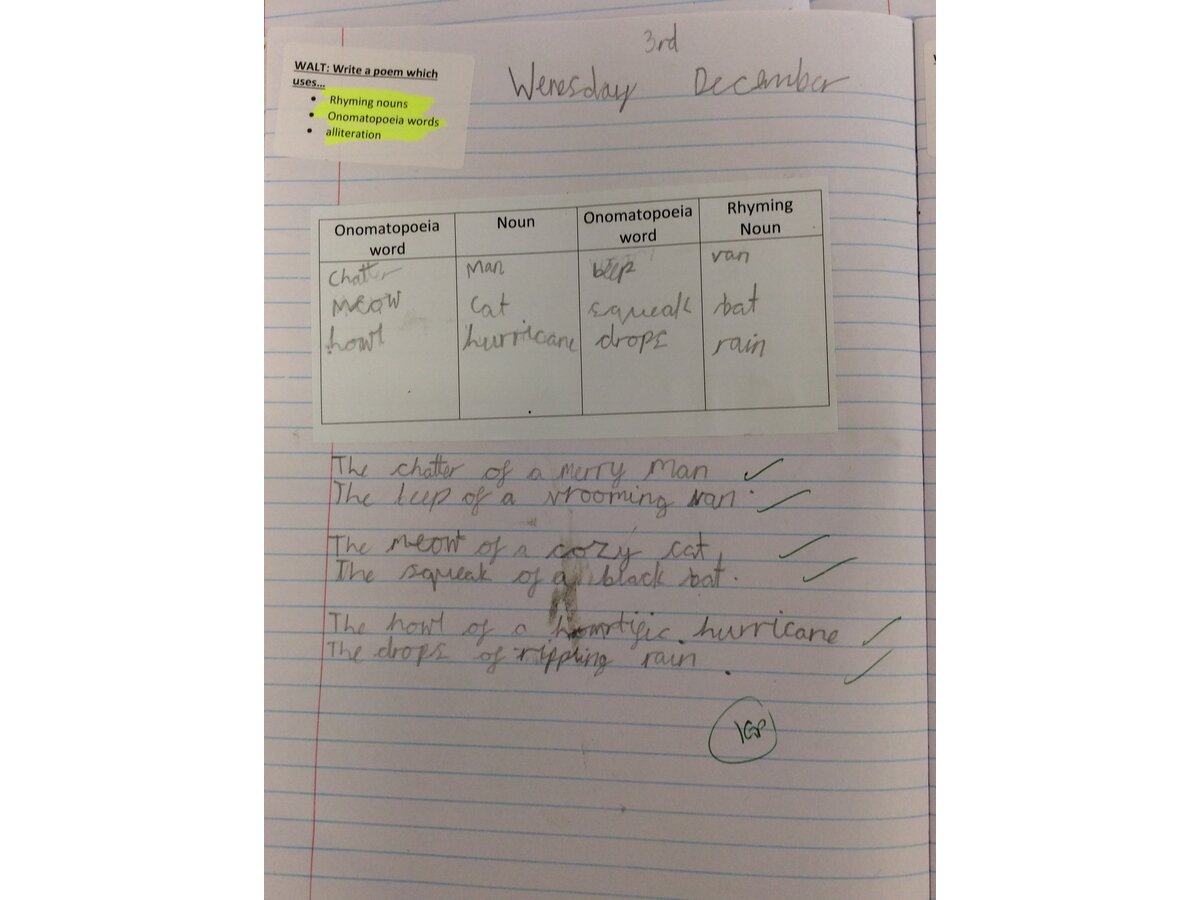 WALT: Write a poem which
uses...
• Rhyming nouns
• Onomatopoeia words
• alliteration
3rd
Wenesday December
Onomatopoeia word Noun Onomatopoeia word Rhyming Noun
Chatter Man beep van
Meow Cat squeak bat
howl hurricane drops rain
The chatter of a merry man
The beep of a vrooming van.
The meow of a cozy cat,
The squeak of a black bat.
The howl of a hurricane
The drops of rippling rain.